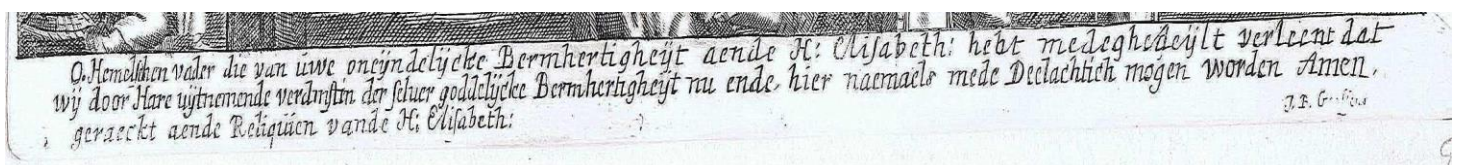 O. Hemelschen vader die van uwe oneÿndelÿcke Bermhertigheÿt aende H: Elisabeth: hebt medeghedeÿlt verleent dat
wÿ door Hare uÿtnemende verdinsten der selver goddelÿcke Bermhertigheÿt nu ende, hier naemaels mede Deelachtich mogen worden Amen.
geraeckt aende Reliquien vande H: Elisabeth: